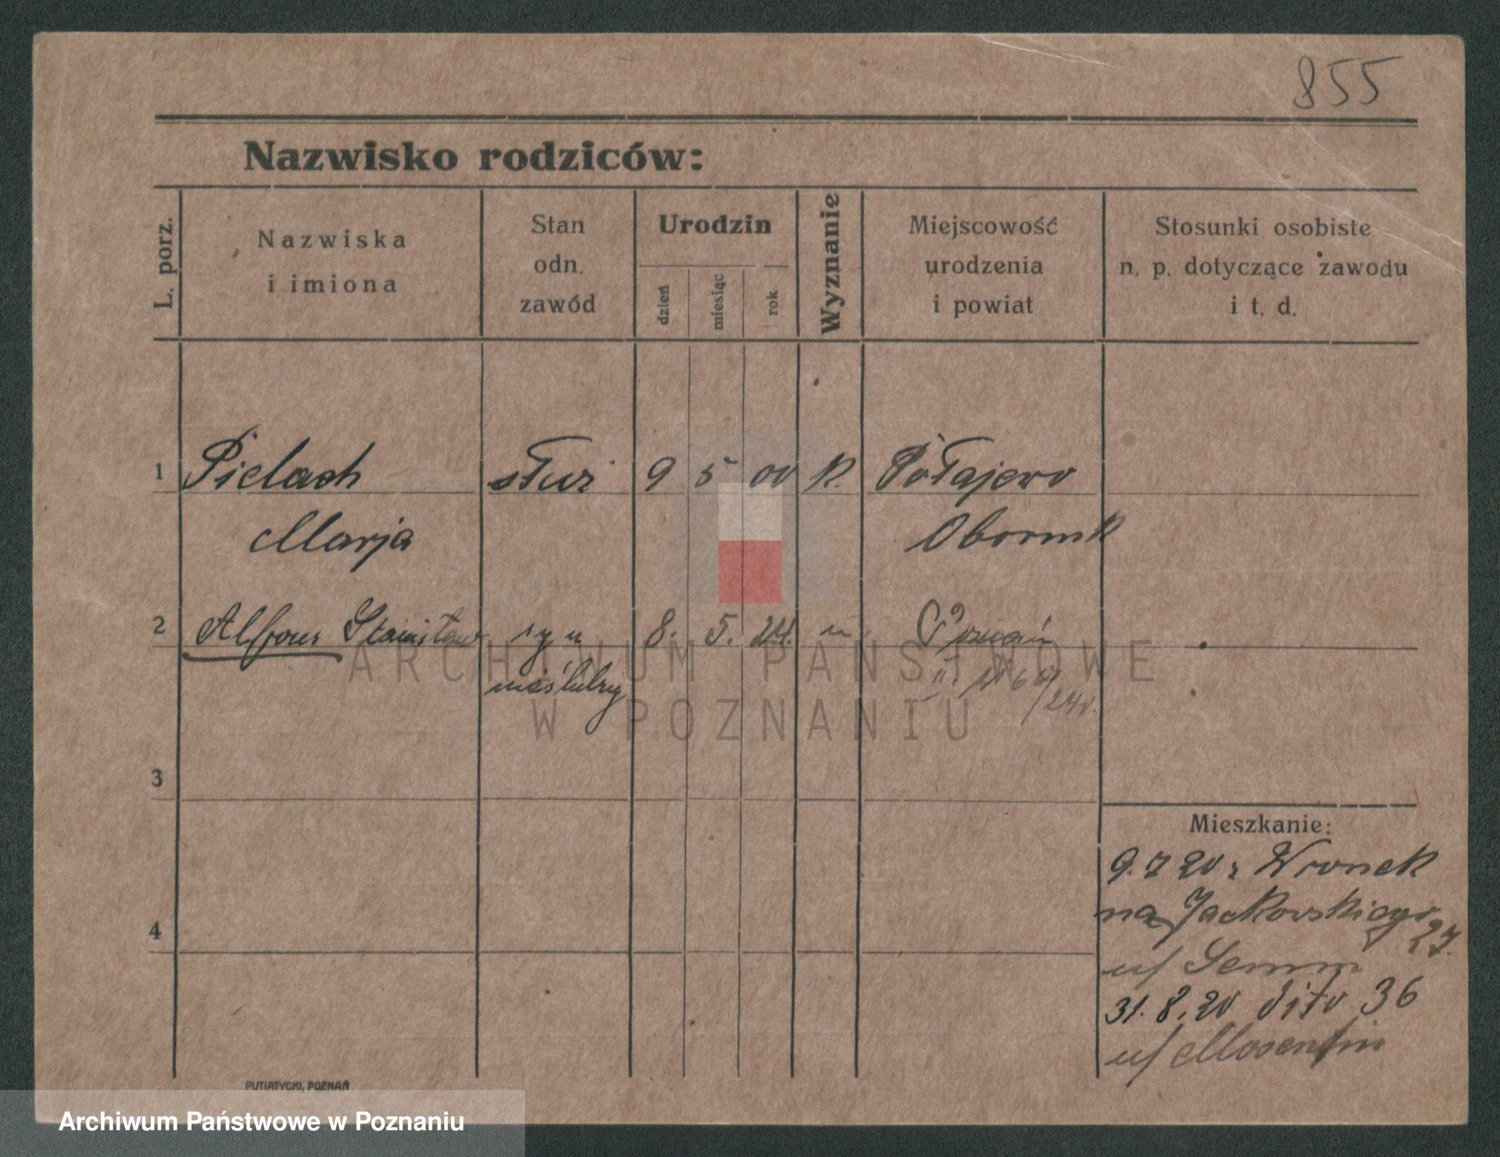 855
Nazwisko rodziców:
L. porz.
Nazwiska
i imiona
Stan
odn.
zawód
Urodzin
dzień
miesiąc
rok
Wyznanie
Miejscowość
urodzenia
i powiat
Stosunki osobiste
n. p. dotyczące zawodu
i t. d.
1 Pielach służ 9 5 00 k. Połajewo
Marja Obornik
2 Alfons Stanisław syn 8. 5. 24. Poznań
nieślubny II 60/24r.
ARCHIWUM PAŃSTWOWE
W POZNANIU
3
4
Mieszkanie:
9.7 20 z Wronek
na Jackowskiego 27.
u/ Semm
31.8.20 dito 36
u/
PUTIATYCKI, POZNAŃ
Archiwum Państwowe w Poznaniu